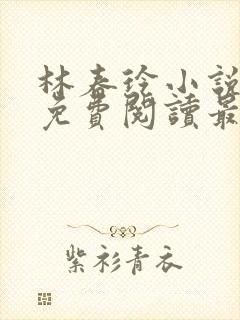 林春徐小說
免費閱讀最
紫衫青衣